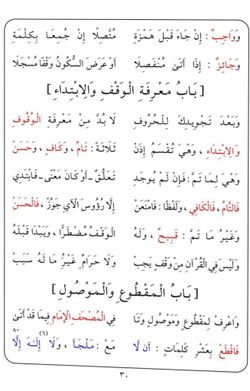 وَوَاجِبٌ : إِنْ جَاءَ قَبْلَ هَمْزَةِ مُتَّصِلًا إِنْ جُمِعَا بِكِلْمَةِ
وَجَائِزٌ : إِذَا أَتَىٰ مُنْفَصِلَا أَوْ عَرَضَ السُّكُونُ وَقْفًا مُسْجَلَا
[ بَابُ مَعْرِفَةِ الْوَقْفِ وَالِابْتِدَاءِ ]
وَبَعْدَ تَجْوِيدِكَ لِلْحُرُوفِ لَا بُدَّ مِنْ مَعْرِفَةِ الْوُقُوفِ
وَالِابْتِدَاءِ ، وَهْيَ تُقْسَمُ إِذَنْ ثَلَاثَةً : تَامٌ ، وَكَافٍ ، وَحَسَنْ
وَهْيَ لِمَا تَمَّ : فَإِنْ لَمْ يُوجَدِ تَعَلُّقٌ - أَوْ كَانَ مَعْنَىً - فَابْتَدِي
فَالتَّامُ ، فَالْكَافِي ، وَلَفْظًا : فَامْنَعَنْ إِلَّا رُؤُوسَ الْآيِ جَوِّزْ ، فَالْحَسَنْ
وَغَيْرُ مَا تَمَّ : قَبِيحٌ ، وَلَهُ الْوَقْفُ مُضْطَرًّا ، وَيَبْدَا قَبْلَهُ
وَلَيْسَ فِي الْقُرْآنِ مِنْ وَقْفٍ يَجِبْ وَلَا حَرَامٌ غَيْرُ مَا لَهُ سَبَبْ
[ بَابُ الْمَقْطُوعِ وَالْمَوْصُولِ ]
وَاعْرِفْ لِمَقْطُوعٍ وَمَوْصُولٍ وَتَا فِي الْمُصْحَفِ الْإِمَامِ فِيمَا قَدْ أَتَىٰ
فَاقْطَعْ بِعَشْرِ كَلِمَاتٍ : أَن لَّا مَعْ : مَلْجَأَ ، وَلَا إِلَـٰهَ إِلَّا
٣٠